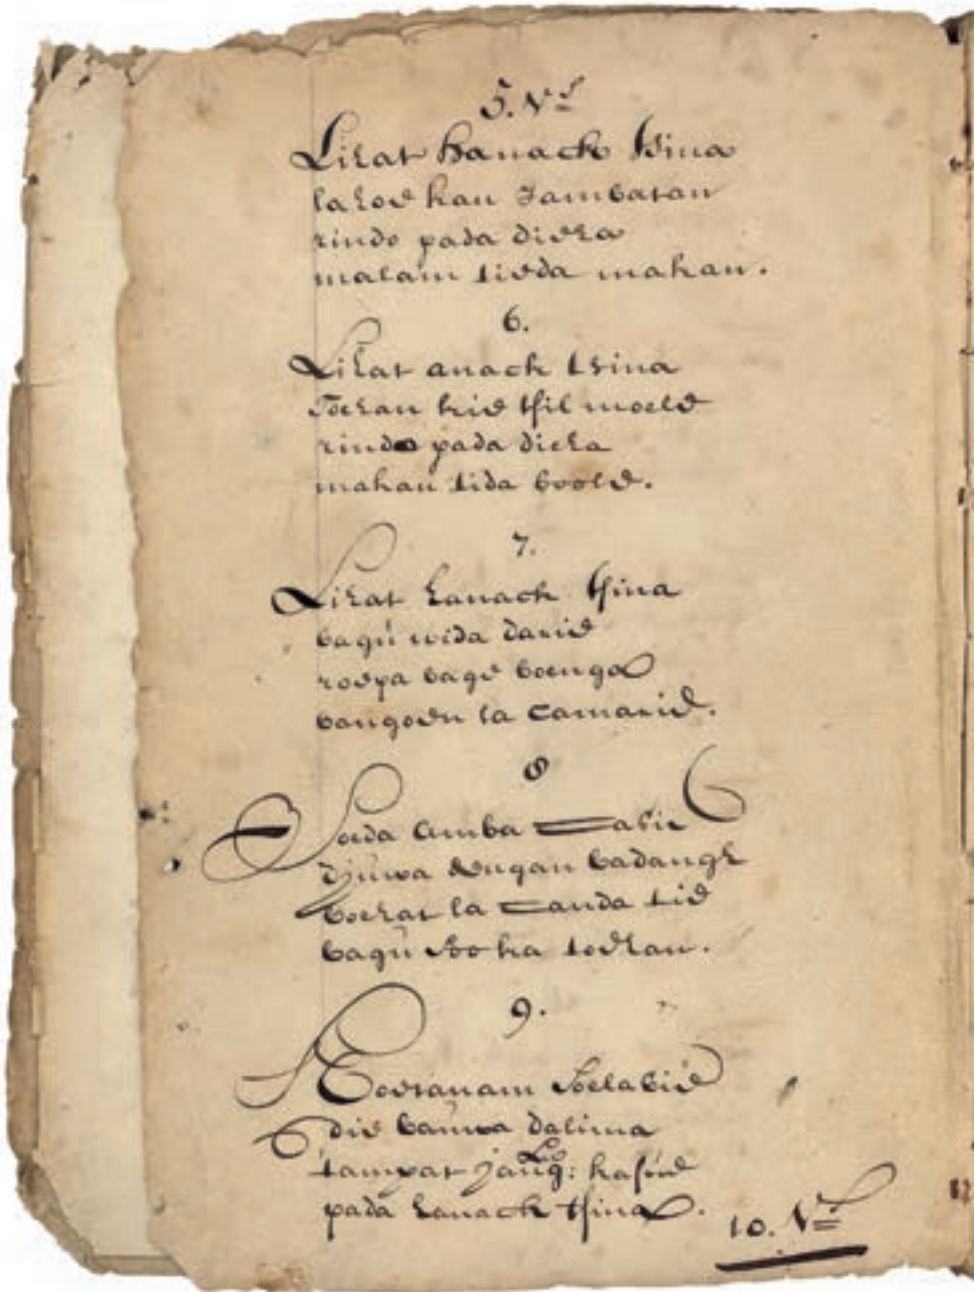 5. Vs
Lihat hanack tsina
lahoe kan Jambatan
rindo pada dieha
malam tieda makan.
6.
Lihat anack tsina
Toehan kie tsil moele
rindo pada dieha
makan tida boole.
7.
Lihat hanack tsina
bagu wida darie
roepa bage boenga
bangoen la Camarie.
8
Soeda Amba Cabie
djiwa dengan badangh
boehat la Canda tie
bagu soo ka toehan.
9.
die bauwa dalima
tampat jang: kasie
pada hanack tsina.
10. Vs